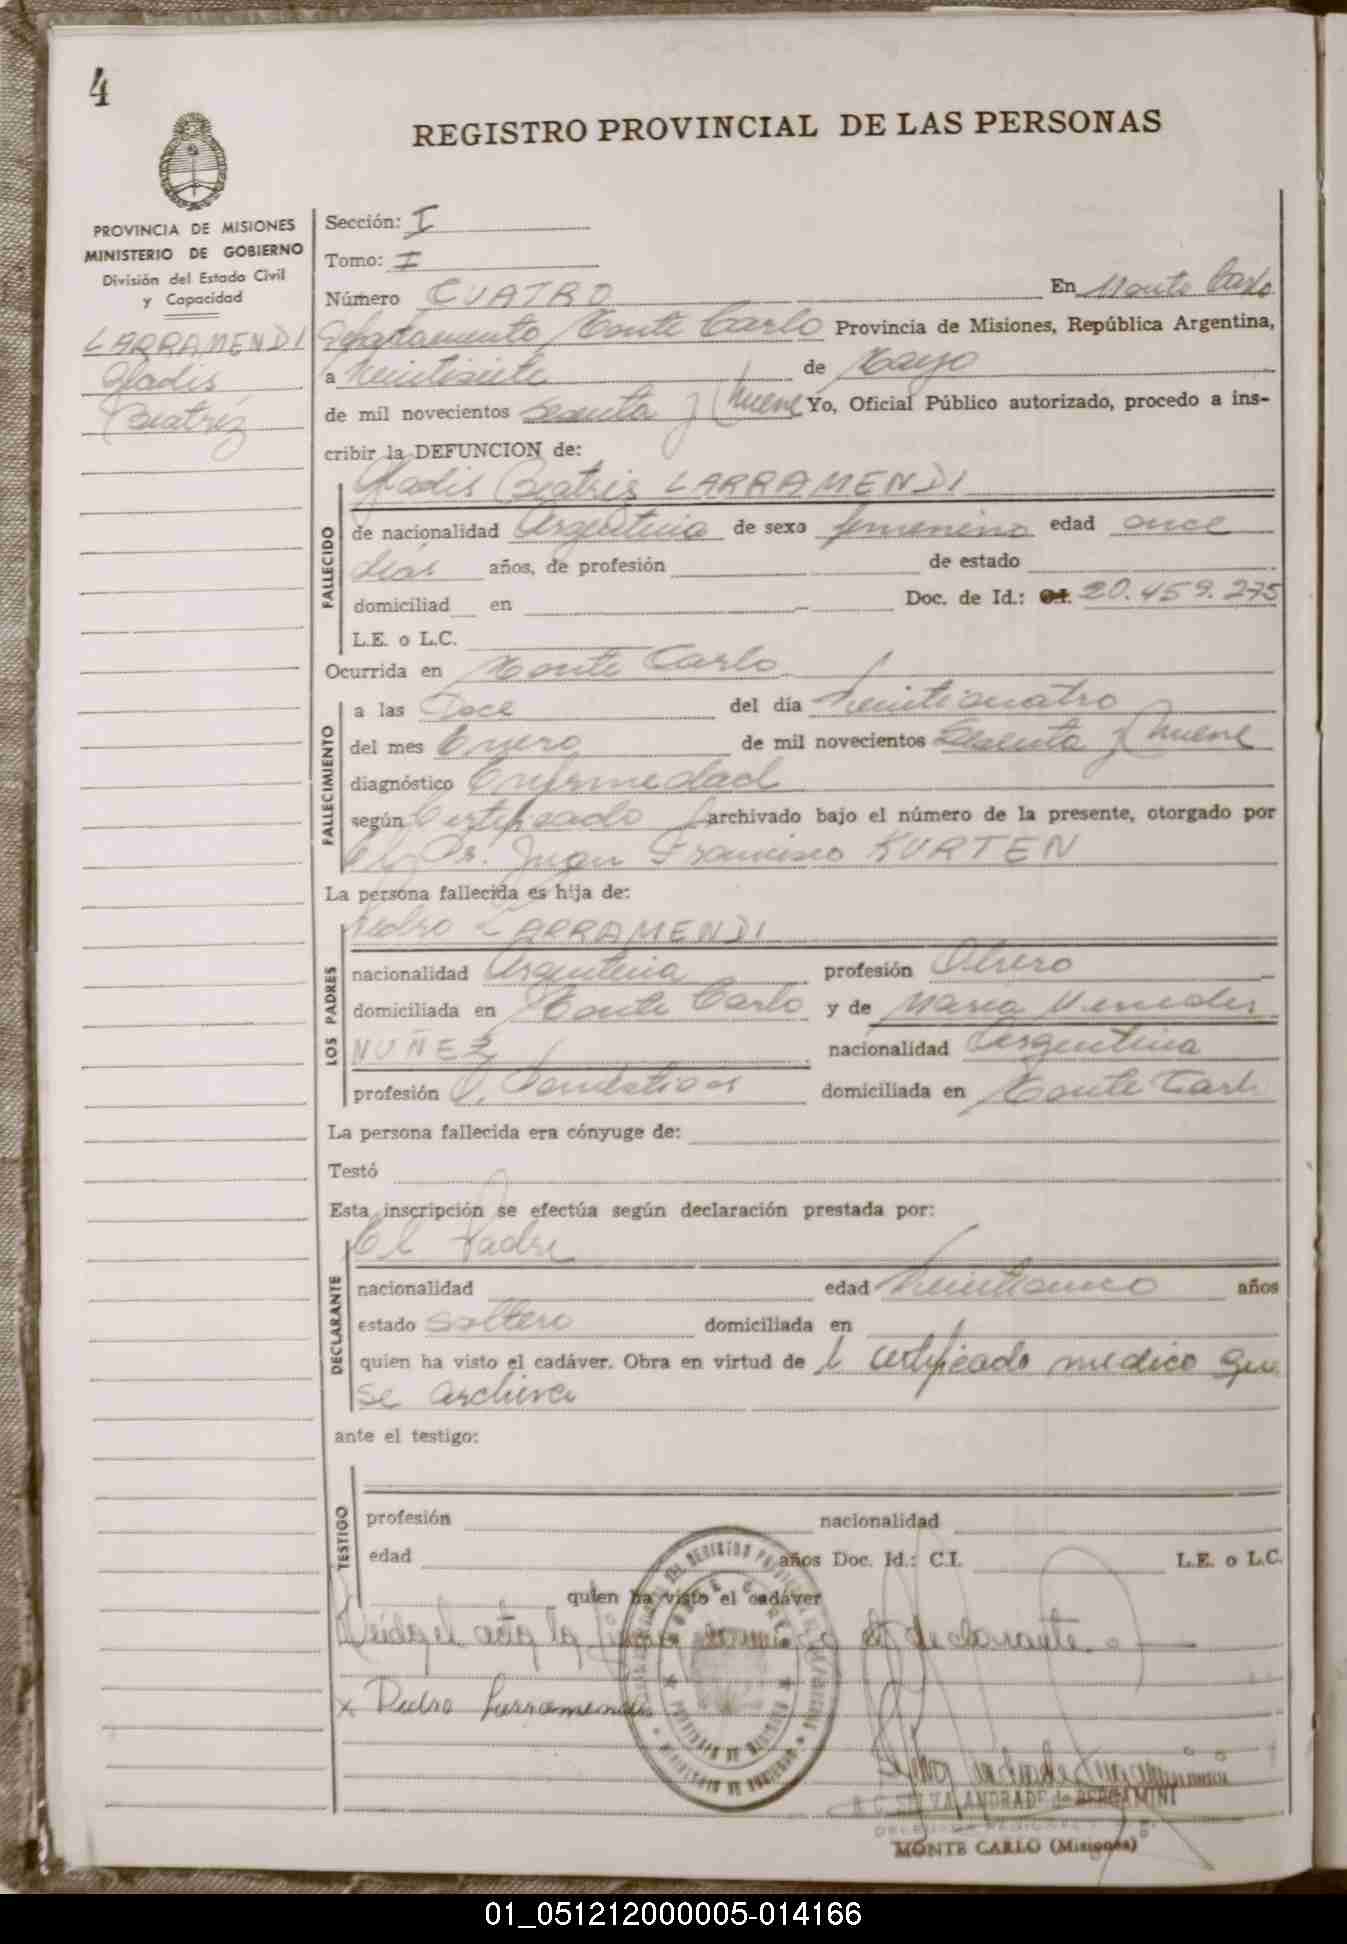 4
REGISTRO PROVINCIAL DE LAS PERSONAS
PROVINCIA DE MISIONES
MINISTERIO DE GOBIERNO
División del Estado Civil
y Capacidad
LARRAMENDI
Gladis
Beatríz
Sección: I
Tomo: I
Número CUATRO En Monte Carlo
Departamento Monte Carlo Provincia de Misiones, República Argentina,
a Veintisiete de Mayo
de mil novecientos Sesenta y Nueve Yo, Oficial Público autorizado, procedo a ins-
cribir la DEFUNCION de:
Gladis Beatris LARRAMENDI
FALLECIDO
de nacionalidad Argentina de sexo femenino edad once
días años, de profesión de estado
domiciliad en Doc. de Id.: C.I. 20.459.275
L.E. o L.C.
Ocurrida en Monte Carlo
FALLECIMIENTO
a las Doce del día Veinticuatro
del mes Enero de mil novecientos Sesenta y Nueve
diagnóstico Enfermedad
según Certificado archivado bajo el número de la presente, otorgado por
el Dr. Juan Francisco KURTEN
La persona fallecida es hija de:
Pedro LARRAMENDI
LOS PADRES
nacionalidad Argentina profesión Obrero
domiciliada en Monte Carlo y de María Mercedes
NUÑEZ nacionalidad Argentina
profesión Q. Domésticos domiciliada en Monte Carlo
La persona fallecida era cónyuge de:
Testó
Esta inscripción se efectúa según declaración prestada por:
El Padre
DECLARANTE
nacionalidad edad Veinticinco años
estado soltero domiciliada en
quien ha visto el cadáver. Obra en virtud de l certificado medico que
se archiva
ante el testigo:
TESTIGO
profesión nacionalidad
edad años Doc. Id.: C.I. L.E. o L.C.
quien ha visto el cadáver
Leida el acta la firma conmigo el declarante.
x Pedro Larramendi
PROVINCIA DE MISIONES
MINISTERIO DE GOBIERNO
SELVA ANDRADE de BERGAMINI
MONTE CARLO (Misiones)
01_051212000005-014166